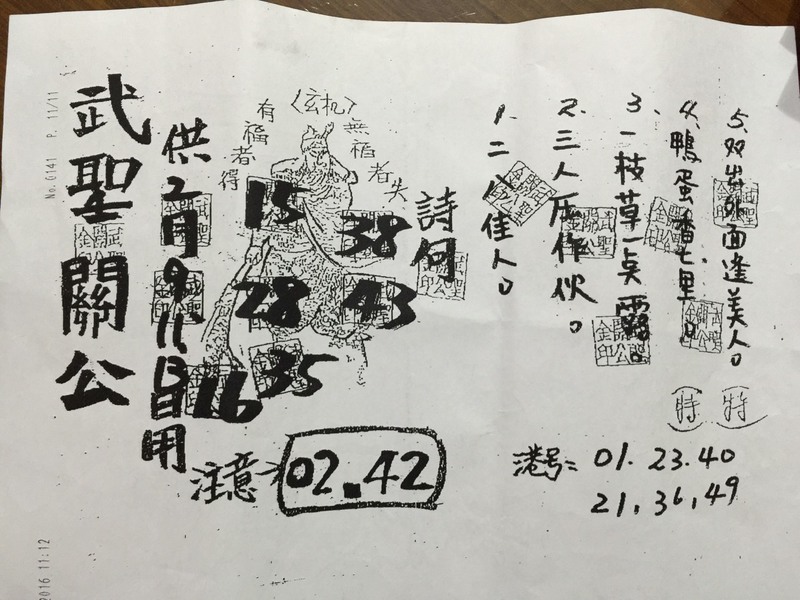 No. 6141 P. 11/11
2016 11:12
武聖關公
供2月9.11.13日用
〈玄机〉
有福者得
無福者失
15
38
28
43
35
16
注意
02.42
詩句
1. 二八佳人。
2. 三人压作伙。
3. 一枝草一奌露。
4. 鴨蛋香七里。
5. 双出外面逢美人。
(特)
(特)
港号= 01. 23. 40
21. 36. 49